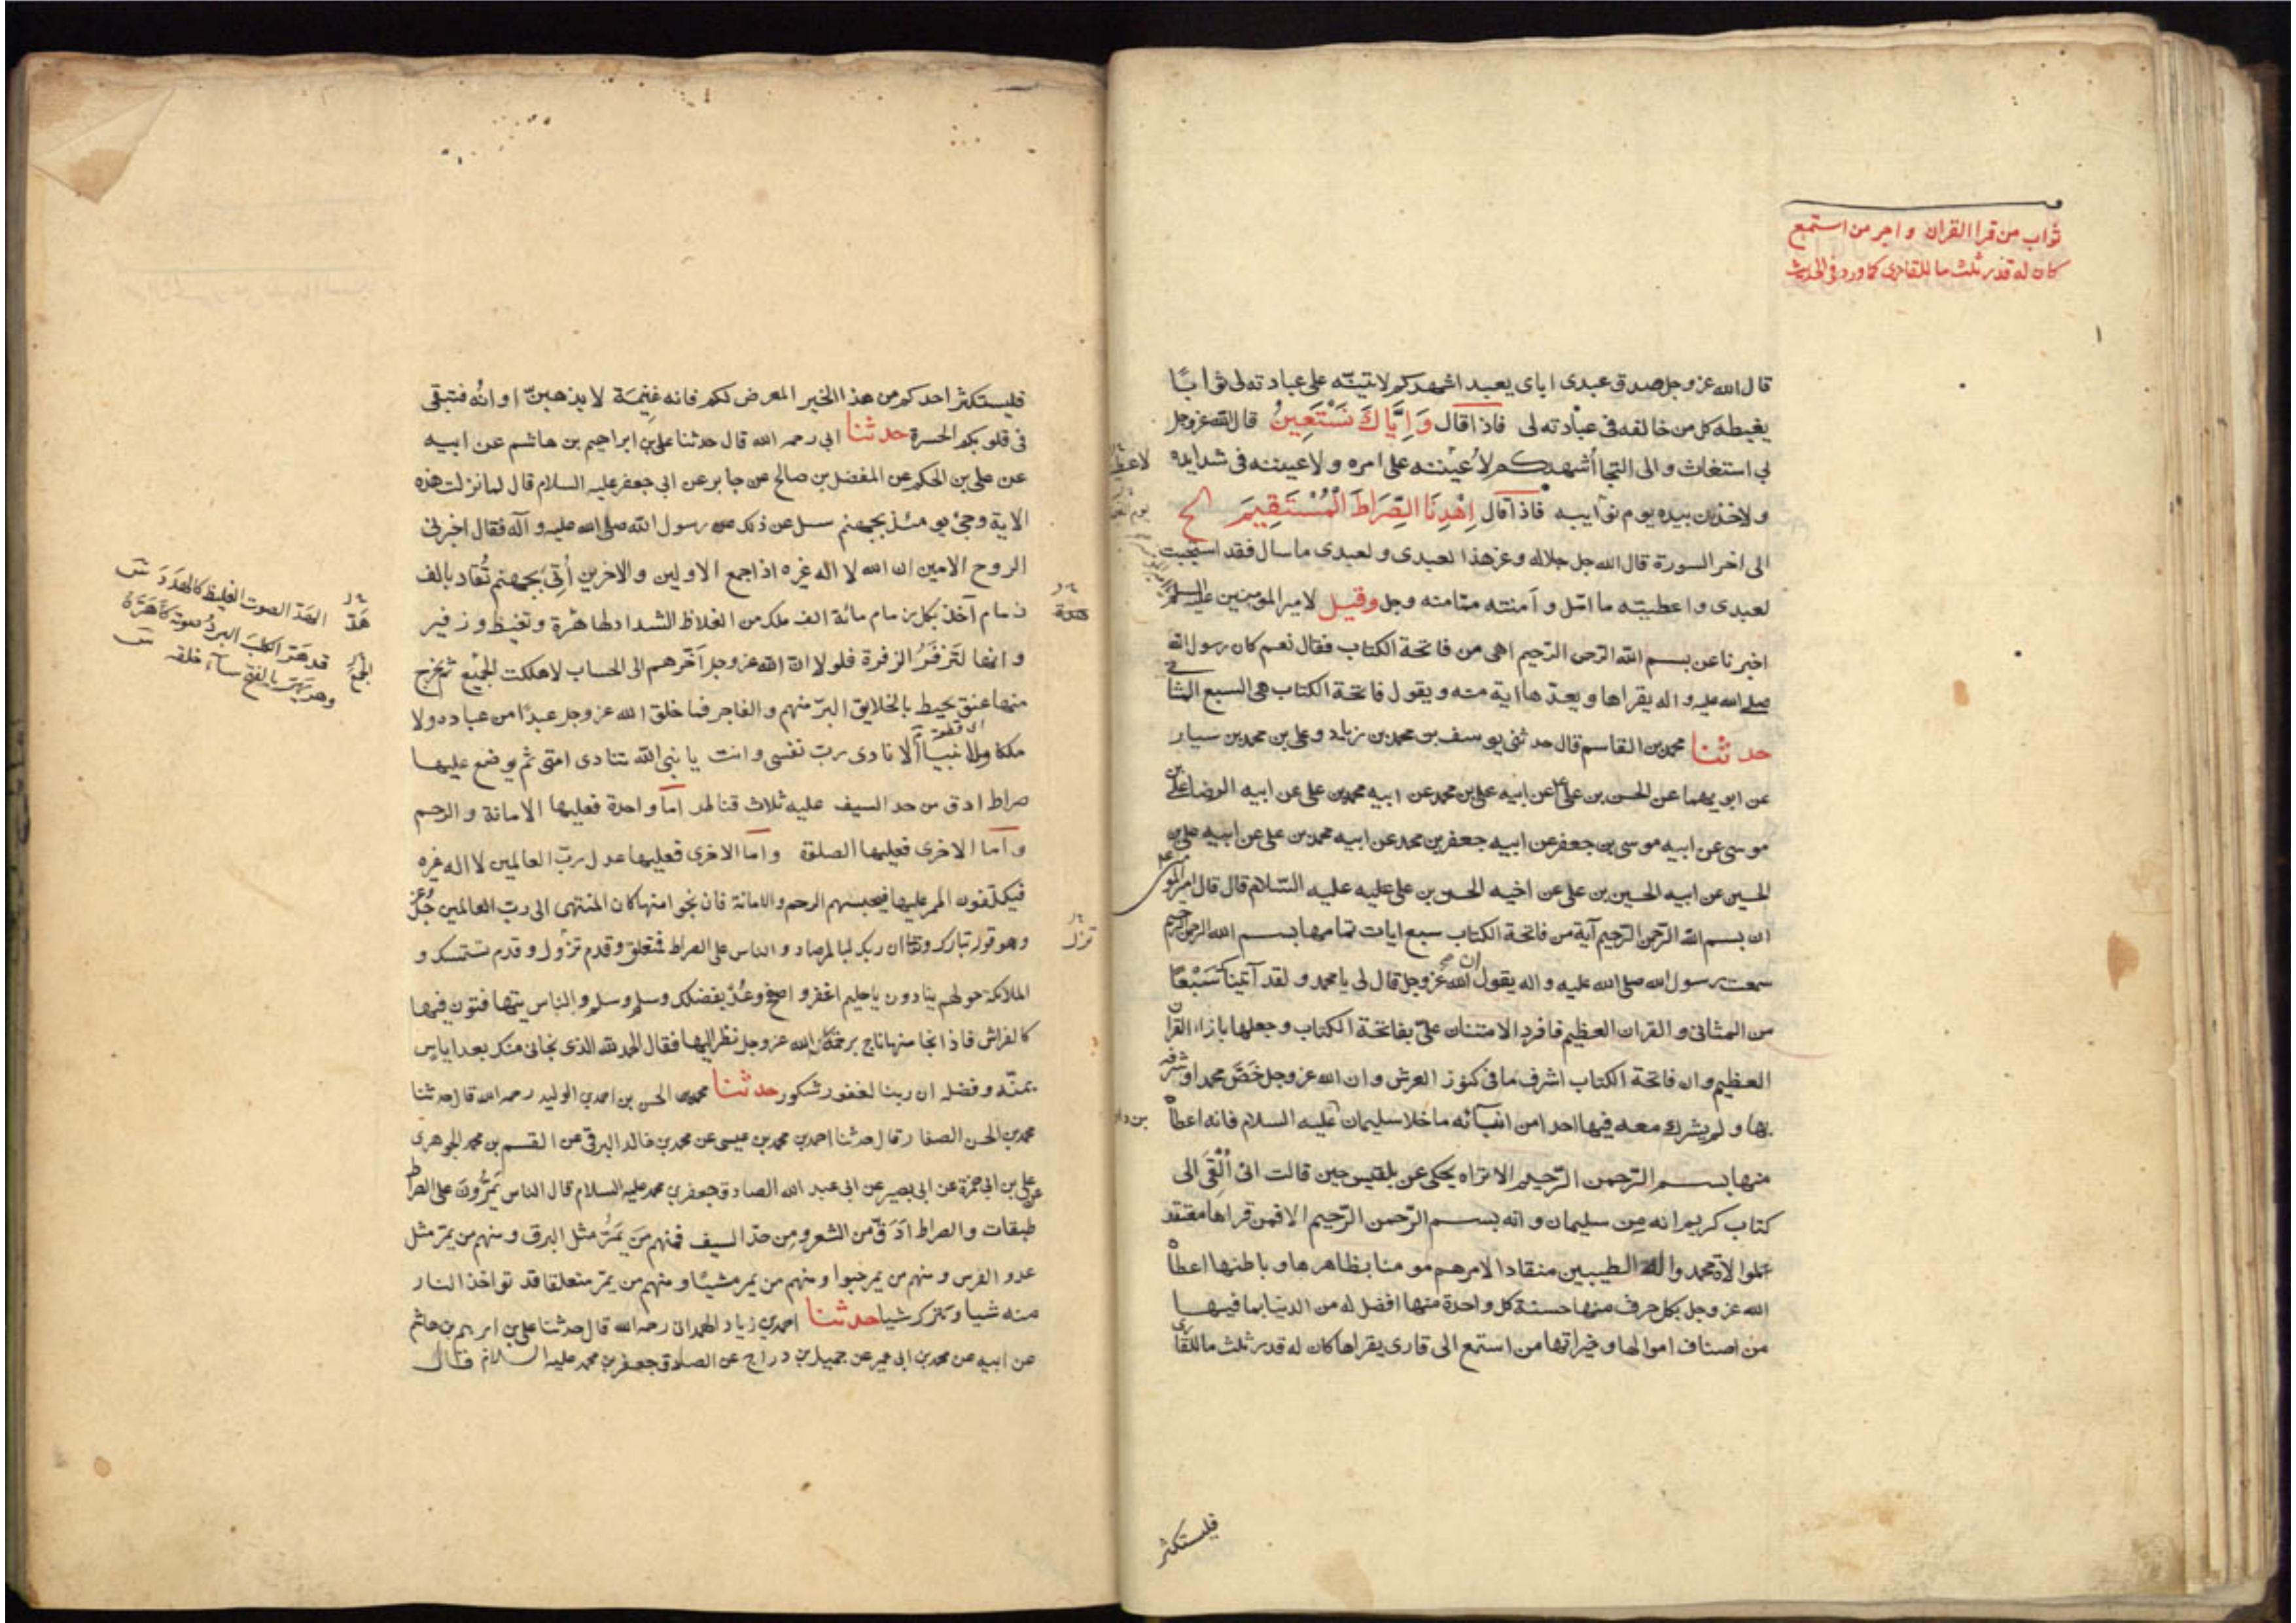 ثواب من قرا القران واجر من استمع
كان له قدر ثلث ما للقاري كما ورد في الحديث
قال الله عز وجل صدق عبدى اياى يعبد اشهدكم لاثيبنه على عبادته لى ثوابًا
يغبطه كل من خالفه فى عبادته لى فاذا قال وَاِيَّاكَ نَسْتَعِينُ قال الله عز وجل
بى استغاث والى التجا أشهدكم لأعيننه على امره ولاعيننه فى شدايده
ولاخذن بيده يوم نوآيبه فاذا قال اِهْدِنَا الصِّرَاطَ الْمُسْتَقِيمَ الخ
الى اخر السورة قال الله جل جلاله وعز هذا لعبدى ولعبدى ما سال فقد استجبت
لعبدى واعطيته ما امّل وآمنته ممّا منه وجل وقيل لامير المومنين عليه السلم
اخبرنا عن بسم الله الرّحمن الرّحيم اهى من فاتحة الكتاب فقال نعم كان رسول الله
صلى الله عليه واله يقراها ويعدّها اية منه ويقول فاتحة الكتاب هى السبع المثانى
حدثنا محمد بن القاسم قال حدثنى يوسف بن محمد بن زياد وعلى بن محمد بن سيار
عن ابويهما عن الحسن بن على عن ابيه على بن محمد عن ابيه محمد بن على عن ابيه الرضا على بن
موسى عن ابيه موسى بن جعفر عن ابيه جعفر بن محمد عن ابيه محمد بن على عن ابيه على بن
الحسين عن ابيه الحسين بن على عن اخيه الحسن بن على عليه عليه السّلام قال قال امير المو
ان بسم الله الرّحمن الرّحيم آية من فاتحة الكتاب سبع ايات تمامها بسم الله الرحمن الرحيم
سمعت رسول الله صلى الله عليه واله يقول ان الله عز وجل قال لى يا محمد ولقد آتيناك سَبْعًا
من المثانى والقران العظيم فافرد الامتنان علىّ بفاتحة الكتاب وجعلها بازاء القران
العظيم وان فاتحة الكتاب اشرف ما فى كنوز العرش وان الله عز وجل خَصَّ محمدا وشرفه
بها ولم يشرك معه فيها احدا من انبيآئه ما خلا سليمان عليه السلام فانه اعطاه
منها بسم الرّحمن الرّحيم الا تراه يحكى عن بلقيس حين قالت انى اُلْقِىَ الى
كتاب كريم انه من سليمان وانه بسم الرّحمن الرّحيم الا فمن قراها معتقد
لموالاة محمد واله الطيبين منقادا لامرهم مومنا بظاهرها وباطنها اعطاه
الله عز وجل بكل حرف منها حسنة كل واحدة منها افضل له من الدنيا بما فيها
من اصناف اموالها وخيراتها من استمع الى قارى يقراها كان له قدر ثلث ما للقارى
فليستكثر
فليستكثر احدكم من هذا الخير المعرض لكم فانه غنِيمَة لا يذهبنّ اوانُه فتبقى
فى قلوبكم الحسرة حدثنا ابى رحمه الله قال حدثنا على بن ابراهيم بن هاشم عن ابيه
عن على بن الحكم عن المفضل بن صالح عن جابر عن ابى جعفر عليه السلام قال لما نزلت هذه
الاية وجئ يومئذ بجهنم سئل عن ذلك من رسول الله صلى الله عليه وآله فقال اخبرنى
الروح الامين ان الله لا اله غيره اذا جمع الاولين والاخرين أتِىَ بجهنم تُقاد بالف
زمام آخذ بكل زمام مائة الف ملك من الغلاظ الشداد لها هدّة وتغيظ وزفير
وانها لتَزفَرُ الزفرة فلولا انّ الله عز وجل أخّرهم الى الحساب لاهلكت الجميع ثم يخرج
منها عنق يحيط بالخلايق البرّ منهم والفاجر فما خلق الله عز وجل عبدًا من عباده ولا
ملكا ولا نبيًا الا نادى ربّ نفسى وانت يا نبى الله تنادى امتى ثم يوضع عليها
صراط ادق من حد السيف عليه ثلاث قناطر امّا واحدة فعليها الامانة والرحم
وامّا الاخرى فعليها الصلوة وامّا الاخرى فعليها عدل ربّ العالمين لا اله غيره
فيكلّفون الممر عليها فيحبسهم الرحم والامانة فان نجوا منها كان المنتهى الى ربّ العالمين جُلّ وعز
وهو قوله تبارك وتعا ان ربك لبالمرصاد والناس على الصراط فمتعلق وقدم تزول وقدم تستمسك و
الملائكة حولهم ينادون يا حليم اغفر واصفح وعُد بفضلك وسلم وسلم والناس يتهافتون فيها
كالفراش فاذا نجا منها ناج برحمة الله عز وجل نظر اليها فقال الحمد لله الذى نجانى منك بعد اياس
بمنّه وفضله ان ربنا لغفور شكور حدثنا محمد بن الحسن بن احمد بن الوليد رحمه الله قال حدثنا
محمد بن الحسن الصفار قال حدثنا احمد بن محمد بن عيسى عن محمد بن خالد البرقى عن القسم بن محمد الجوهرى
عن على بن ابى حمزة عن ابى بصير عن ابى عبد الله الصادق جعفر بن محمد عليه السلام قال الناس يَمرُّونَ على الصراط
طبقات والصراط اَدَقّ من الشعر ومِن حدّ السيف فمنهم مَن يَمرُّ مثل البرق ومنهم من يمرّ مثل
عدو الفرس ومنهم من يمر حبوا ومنهم من يمر مشيًا ومنهم من يمرّ متعلقا قد تواخذ النار
منه شيا وتترك شيا حدثنا احمد بن زياد الهمدانى رحمه الله قال حدثنا على بن ابرهيم بن هاشم
عن ابيه عن محمد بن ابى عمير عن جميل بن دراج عن الصادق جعفر بن محمد عليه السلام قال
هدة
تزل
الهَدّ الصوت الغليظ كالهَدَدَ